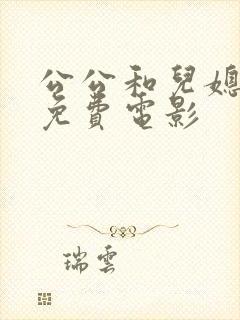 公公和兒媳
免費電影
瑞雲